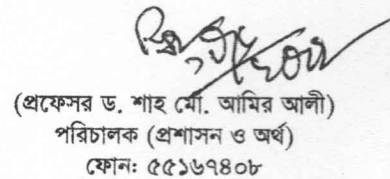 (প্রফেসর ড. শাহ মো. আমির আলী)
পরিচালক (প্রশাসন ও অর্থ)
ফোনঃ ৫৫১৬৭৪০৮